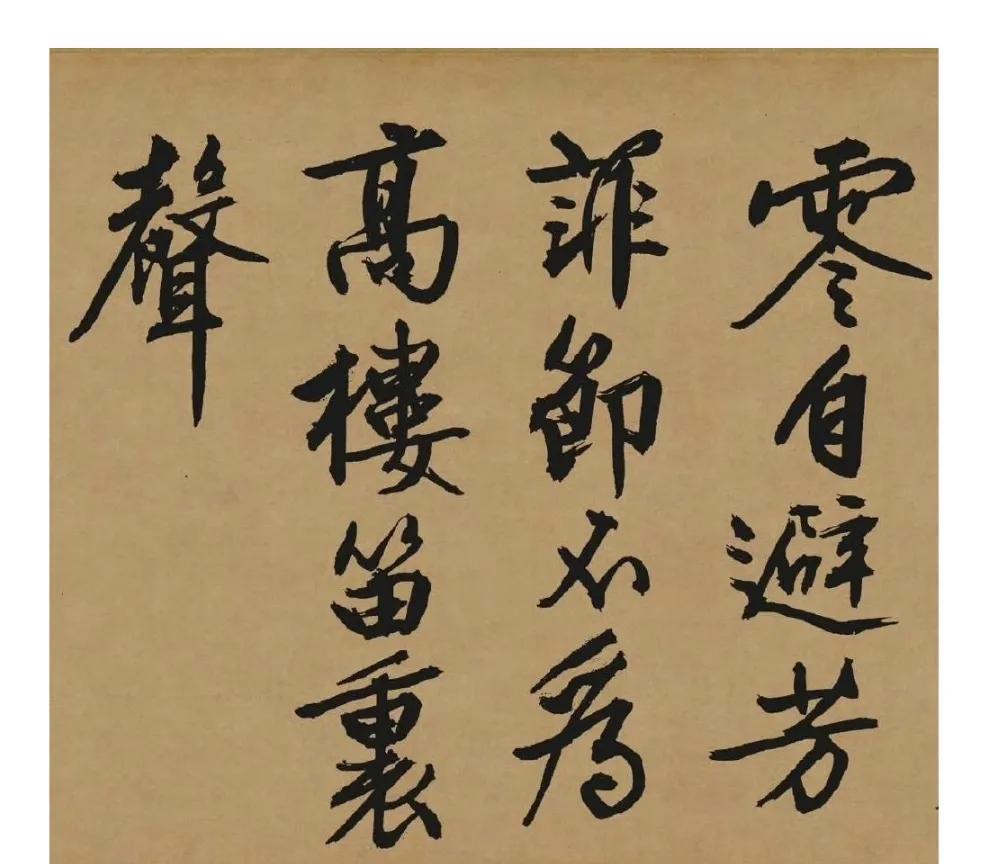 零自避芳
菲節不為
高樓笛裏
聲